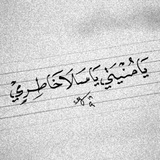 يَا مُنْيَتِي يَا سَلَا خَاطِرِي